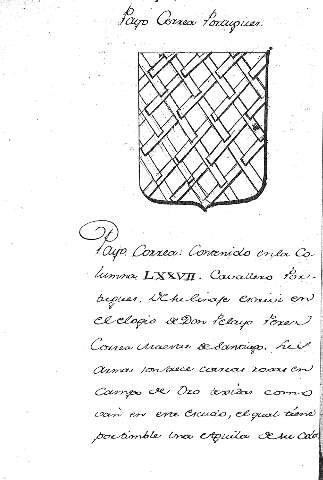 Payo Correa Portugues.
Payo Correa: Contenido en la Co-
lumna LXXVII. Cavallero Por-
tugues. De he linaje en
el elogio de Don Pelayo Perez
Correa Maestre de Santiago. Sus
armas son trece correas roxas en
Campo de Oro texidas como
van en este escudo, el qual tiene
por timble una Aguila de su Color